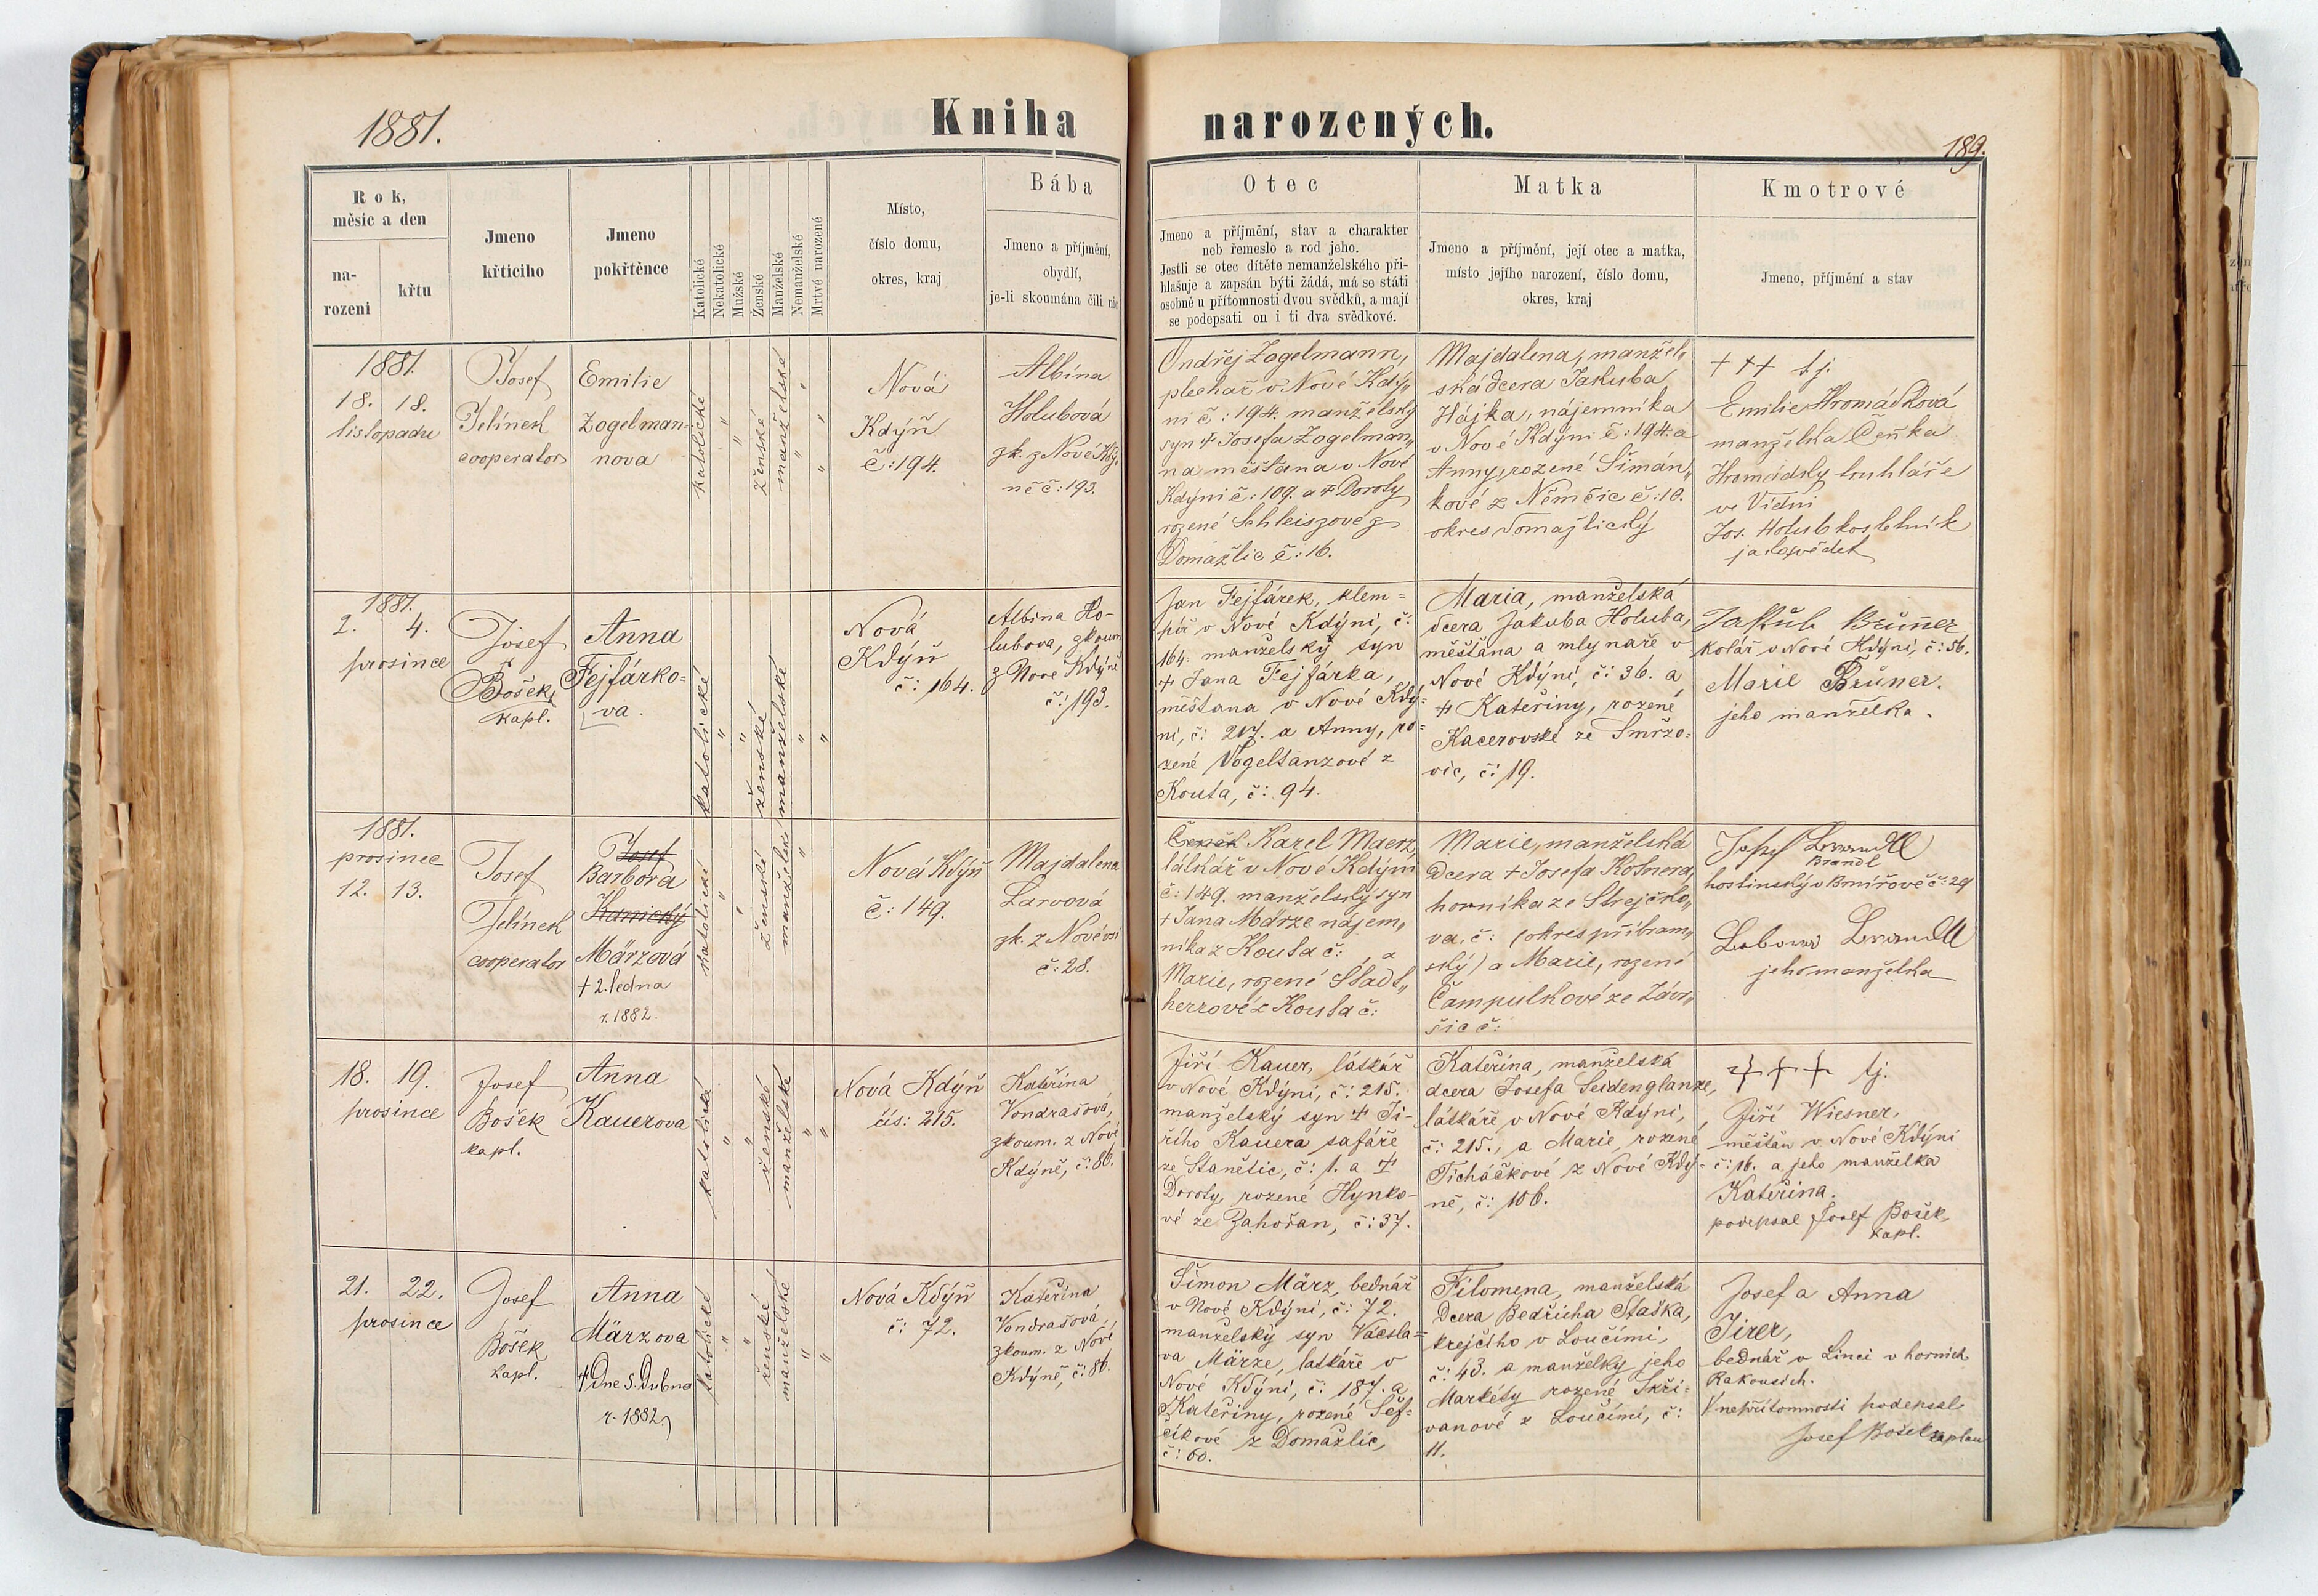 1881.
Kniha
narozených.
189.
Rok,
měsíc a den
na-
rozeni
křtu
Jmeno
křticiho
Jmeno
pokřtěnce
Katolické
Nekatolické
Mužské
Ženské
Manželské
Nemanželské
Mrtvé narozené
Místo,
číslo domu,
okres, kraj
Bába
Jmeno a příjmění,
obydlí,
je-li skoumána čili nic
Otec
Jmeno a příjmění, stav a charakter
neb řemeslo a rod jeho.
Jestli se otec dítěte nemanželského při-
hlašuje a zapsán býti žádá, má se státi
osobně u přítomnosti dvou svědků, a mají
se podepsati on i ti dva svědkové.
Matka
Jmeno a příjmění, její otec a matka,
místo jejího narození, číslo domu,
okres, kraj
Kmotrové
Jmeno, příjmění a stav
1881.
18. 18.
listopadu
Josef
Jelínek
cooperator
Emilie
Zogelman-
nova
katolické
"
"
ženské
manželské
"
"
Nová
Kdýň
č: 194.
Albína
Holubová
zk. z Nové Kdý„
ně č: 193.
Ondřej Zogelmann,
plechař v Nové Kdý„
ni č: 194. manželský
syn † Josefa Zogelman„
na měšťana v Nové
Kdýni č: 109. a † Doroty
rozené Schleiszové z
Domažlic č: 16.
Majdalena, manžel„
ská dcera Jakuba
Hájka, nájemníka
v Nové Kdýni č: 194. a
Anny, rozené Šimán„
kové z Němčic č: 10.
okres Domažlický
+ + + t.j.
Emilie Hromádková
manželka Čeňka
Hromádky truhláře
ve Vídni
Jos. Holub kostelník
ja
1881.
2. 4.
prosince
Josef
Bošek,
kapl.
Anna
Fejfárko=
va.
katolické
"
"
ženské
manželské
"
"
Nová
Kdýň
č: 164.
Albina Ho-
lubova, zkoum
z Nové Kdýně
č: 193.
Jan Fejfárek, klem=
píř v Nové Kdýni, č:
164. manželský syn
† Jana Fejfárka,
měšťana v Nové Kdý-
ni, č: 217. a Anny, ro=
zené Vogeltanzové z
Kouta, č: 94.
Maria, manželská
dcera Jakuba Holuba,
měštěna a mlynaře v
Nové Kdýni, č: 36. a
† Kateřiny, rozené
Kacerovské ze Smržo-
vic, č: 19.
Jakub Brůner
kolář v Nové Kdýni, č: 56.
Marie Brůner.
jeho manželka.
1881.
prosince
12. 13.
Josef
Jelínek
cooperator
Josef
Barbora
Märzová
+ 2. ledna
r. 1882.
katolické
"
"
ženské
manželské
"
Nová Kdýň
č: 149.
Majdalena
Larvová
zk. z Nové vsi
č: 28.
Čeněk Karel Maerz,
látkář v Nové Kdýni
č: 149. manželský syn
+ Jana Märze nájem„
níka z Kouta č: a
Marie, rozené Stadt„
herrové z Kouta č:
Marie, manželská
dcera + Josefa Kotnera
horníka ze Strejčko„
va, č: (okres příbram„
ský) a Marie, rozené
Čampulkové ze Závr„
šic č:
Josef Brandl
Brandl
hostinský v Brnířově č: 29
Brandl
jeho manželka
18. 19.
prosince
Josef
Bošek
kapl.
Anna
Kauerova
katolické
"
"
ženské
manželské
"
"
Nová Kdýň
čís: 215.
Kateřina
Vondrašová,
zkoum. z Nové
Kdýně, č: 86.
Jiří Kauer, látkář
v Nové Kdýni, č: 215.
manželský syn † Ji-
řího Kauera šafáře
ze Stanětic, č: 1. a †
Doroty, rozené Hynko-
vé ze Zahořan, č: 37.
Kateřina, manželská
dcera Josefa Seidenglanze,
látkáře v Nové Kdýni,
č: 215., a Marie, rozené
Ticháčkové z Nové Kdý-
ně, č: 106.
+ + + tj.
Jiří Wiesner,
měštěn v Nové Kdýni
č: 16. a jeho manželka
Kateřina.
podepsal Josef Bošek,
kapl.
21. 22.
prosince
Josef
Bošek
kapl.
Anna
Märzova
+ Dne 5. Dubna
r. 1882.
katolické
"
"
ženské
manželské
"
"
Nová Kdýň
č: 72.
Kateřina
Vondrašová,
zkoum. z Nové
Kdýně, č: 86.
Šimon März, bednář
v Nové Kdýni, č: 72.
manželský syn Václa=
va Märze, látkáře v
Nové Kdýni, č: 187. a
Kateřiny, rozené Šef-
číkové z Domažlic,
č: 60.
Filomena, manželská
dcera Bedřicha Staška,
krejčího v Loučími,
č: 43. a manželky jeho
Markéty rozené Skři-
vanové z Loučími, č:
11.
Josef a Anna
Jirer,
bednář v Linci v horních
Rakousích.
V nepřítomnosti podepsal
Josef Bošek kaplan